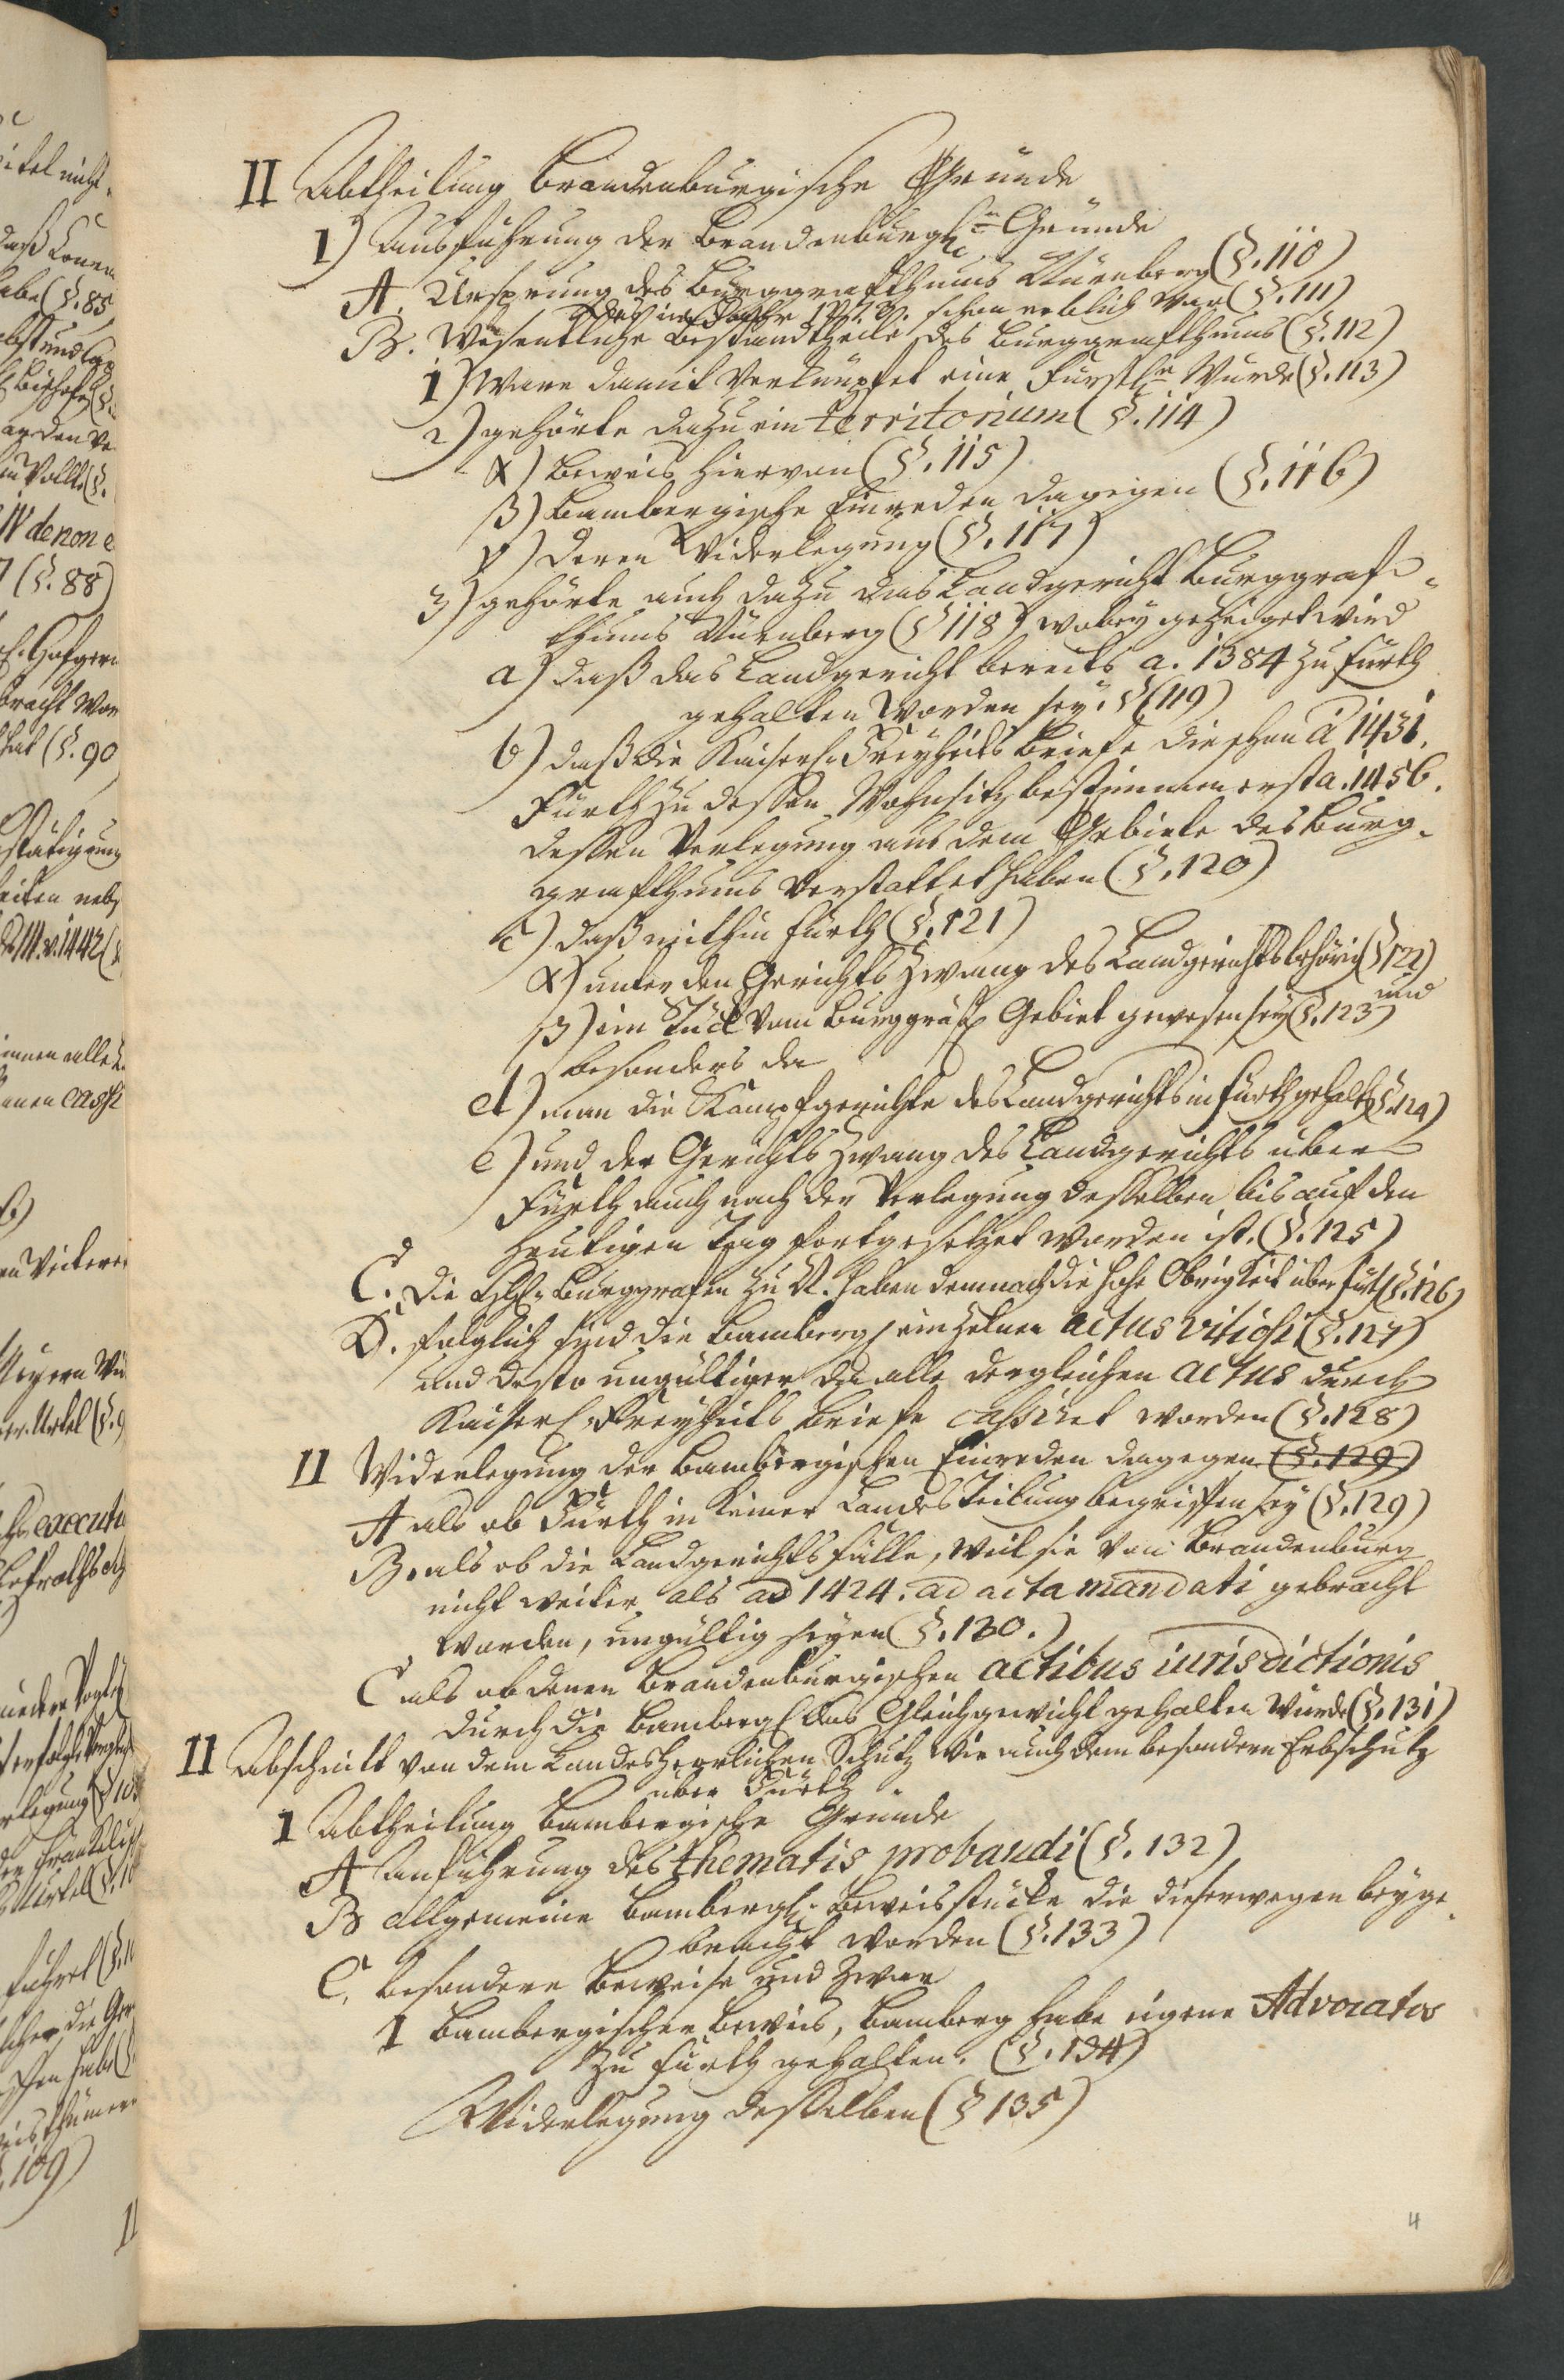 II Abtheilung Brandenburgische Gründe
1) Ausführung der Brandenburg. Gründe
A. Ursprung des Burggrafthums Nürnberg (§. 110)
schon erblich war (§. 111)
B. Wesentliche Bestandtheile des Burggrafthums (§. 112)
1) Ware damit verknüpfet eine Fürstl. Würde (§. 113)
2) gehörte dazu ein territorium (§. 114)
α) Beweis hiervon (§. 115)
β) Bambergische Einreden dagegen (§. 116)
γ) deren Widerlegung (§. 117)
3) gehörte auch dazu das Landgericht Burggraf-
thums Nürnberg (§ 118) wobey gezeiget wird
a) daß das Landgericht bereits a. 1384 zu Fürth
gehalten worden sey. § (119)
b) daß die Kaiserl. Freyheits Briefe die schon aō 1431.
Fürth zu dessen Wohnsitz bestimmen erst a. 1456.
dessen Verlegung aus dem Gebiete des Burg-
grafthums verstattet haben (§. 120)
c) daß mithin Fürth (§. 121)
α) unter den Gerichts Zwang des Landgerichts gehörig (§ 122)
und
β) ein Stück vom Burggräfl. Gebiet gewesen sey (§. 123)
besonders da
d) man die Kampfgerichte des Landgerichts in Fürth gehalt. (§. 124)
e) und der Gerichts Zwang des Landgerichts über
Fürth auch nach der Verlegung desselben bis auf den
heutigen Tag fortgesetzet worden ist. (§. 125)
C. Die Burggrafen zu N. haben demnach die hohe Obrigkeit über Fürth (§. 126)
D. folglich sind die Bamberg. einzelnen actus vitiosi (§. 127)
und desto ungültiger da alle dergleichen actus durch
Kaiserl. Freyheits Briefe cassiret worden (§. 128)
II Widerlegung der Bambergischen Einreden dagegen (§. 129)
A als ob Fürth in keiner Landes Teilung begriffen sey (§. 129)
B. als ob die Landgerichtsfälle, weil sie von Brandenburg
nicht weiter als ad 1424. ad acta mandati gebracht
worden, ungültig seyen (§. 130.)
C als ob denen Brandenburgischen actibus iurisdictionis
durch die Bamberg. das Gleichgewicht gehalten würde (§. 131)
II Abschnitt von dem Landesherrlichen Schutz wie auch dem besondern Erbschutz
über Fürth
1 Abtheilung Bambergische Gründe
A Anführung des thematis probandi (§. 132)
B allgemeine Bamberg. Beweisstücke die dieserwegen beyge-
bracht worden (§. 133)
C. besondere Beweise und zwar
1 Bambergischer Beweis, Bamberg habe eigene Advocatos
zu Fürth gehalten. (§. 134)
Widerlegung desselben (§ 135)
4